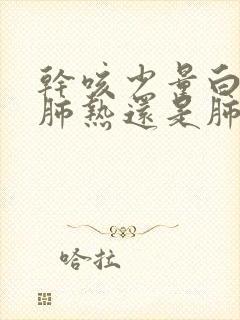 幹咳少量白
肺熱還是肺
哈拉